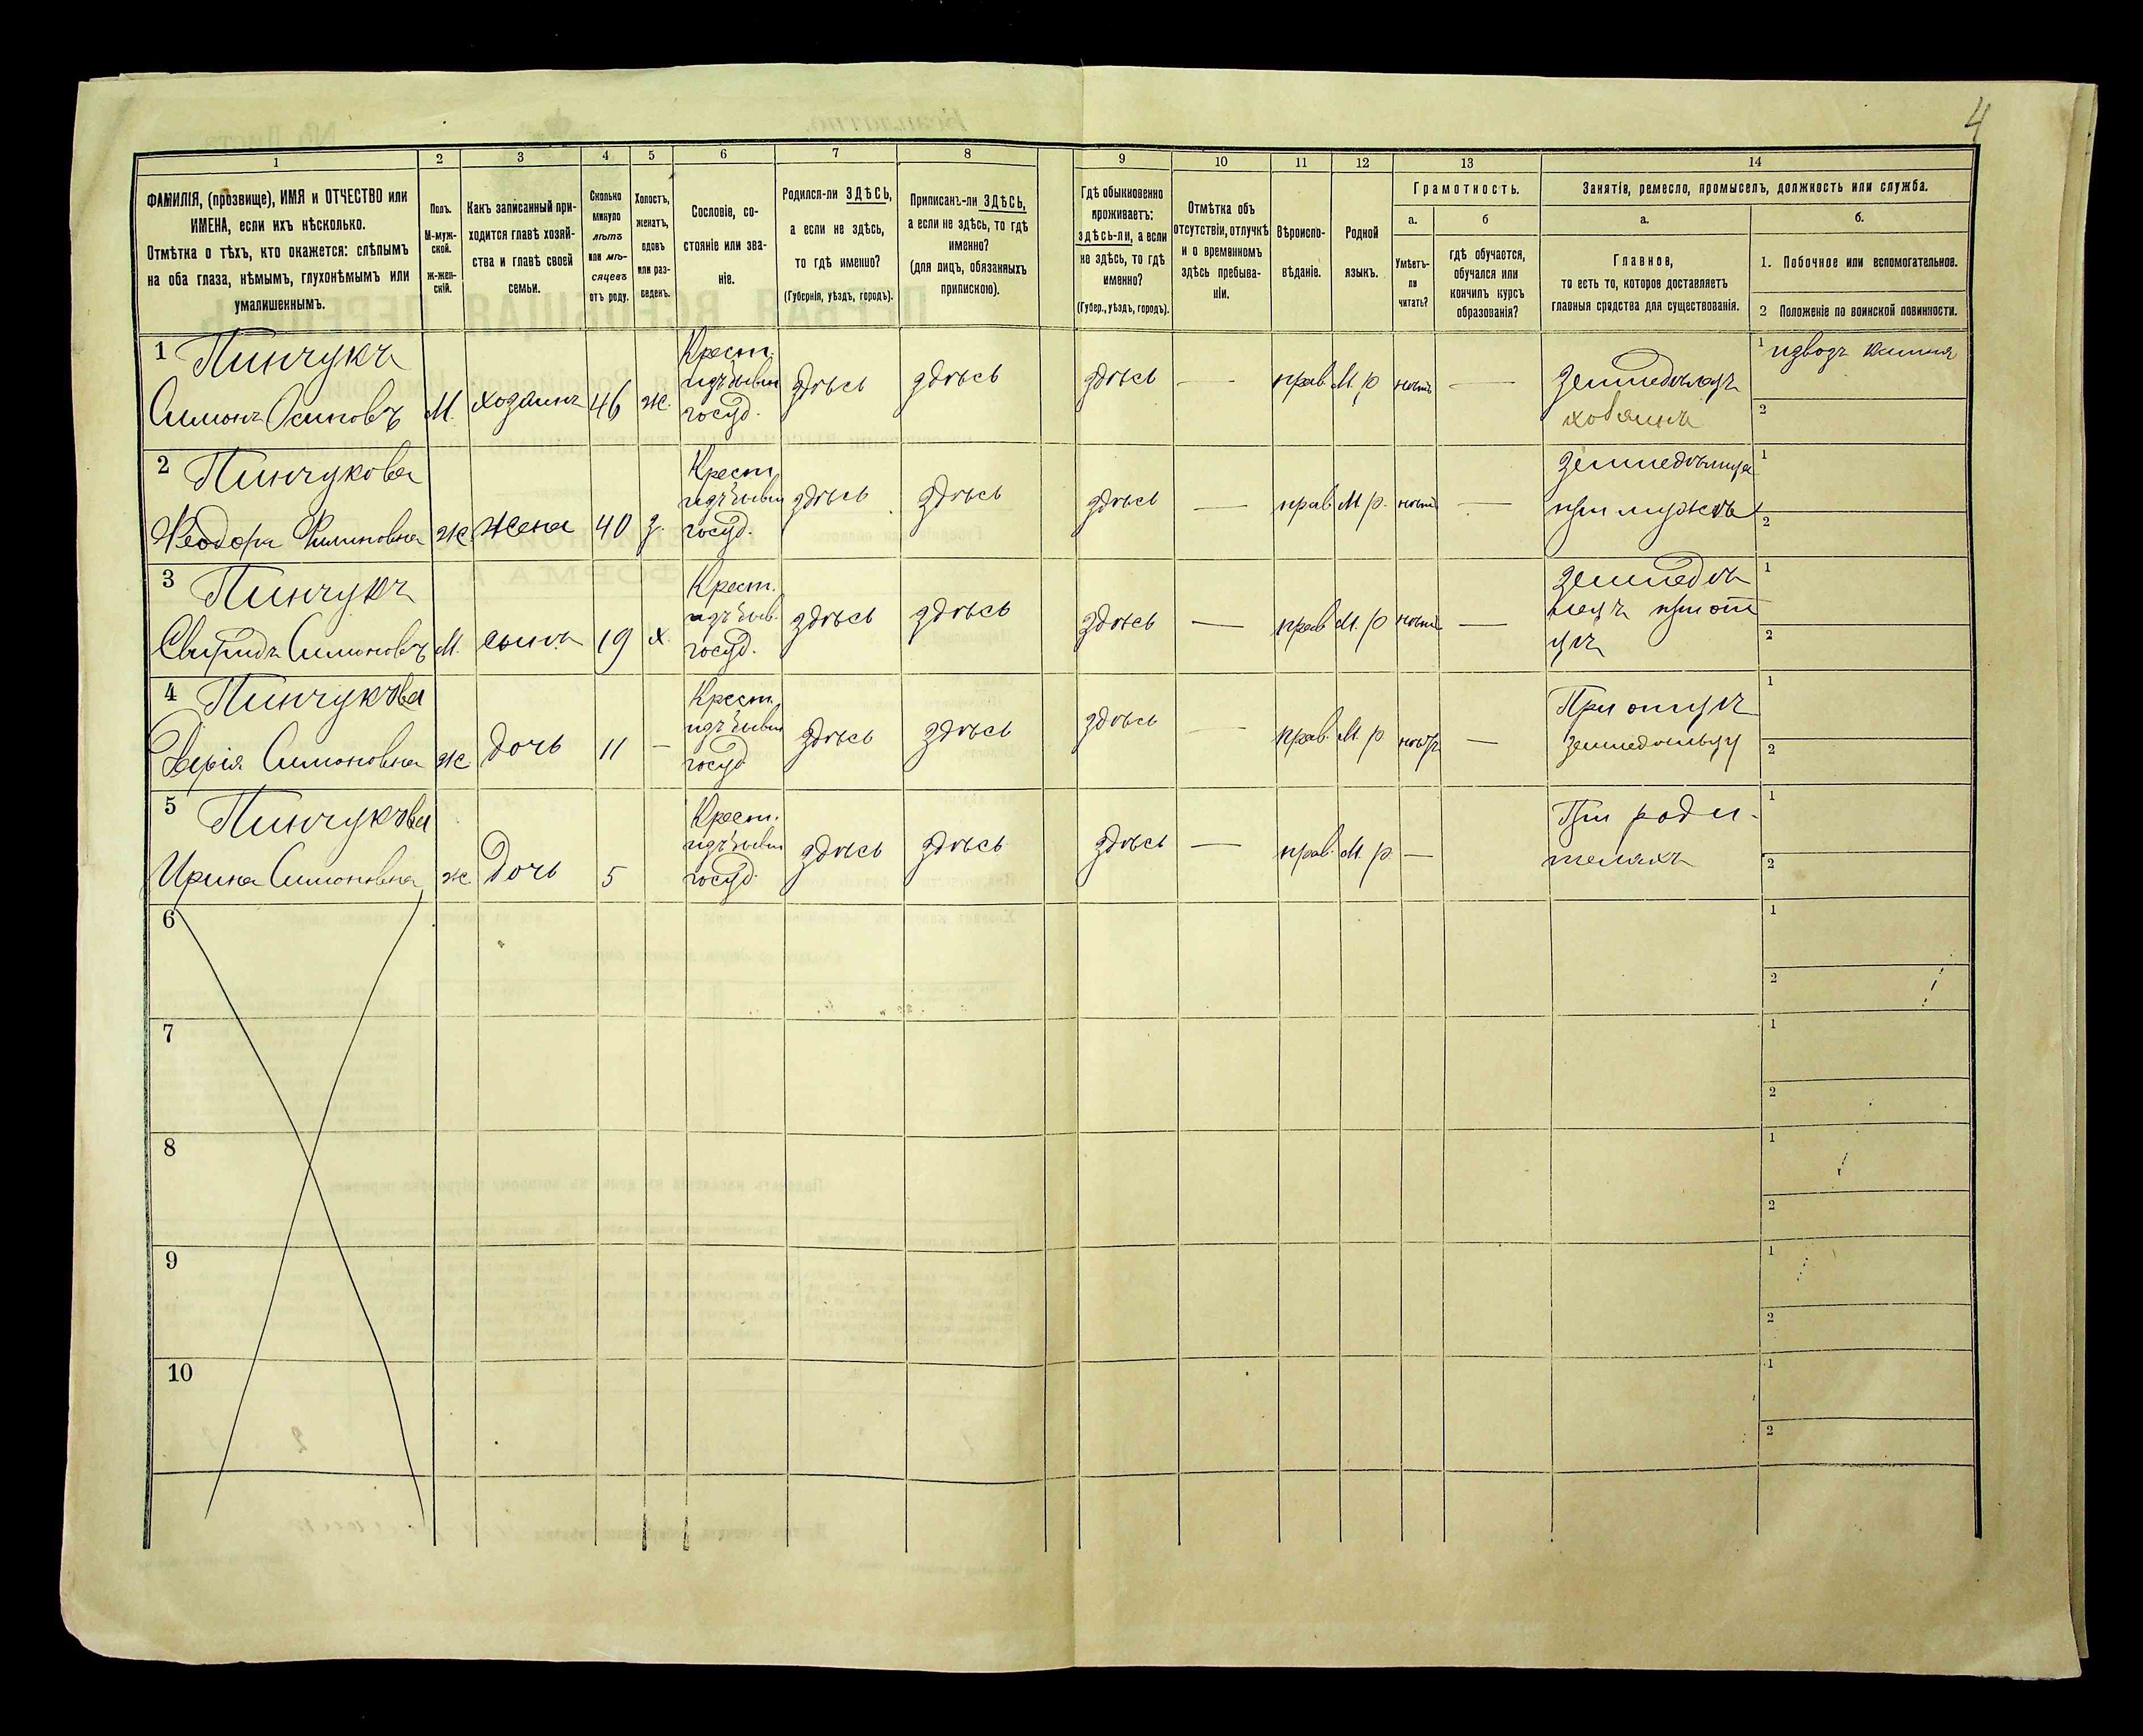 4
1
2
3
4
5
6
7
8
9
10
11
12
13
14
ФАМИЛІЯ, (прозвище), ИМЯ и ОТЧЕСТВО или
ИМЕНА, если ихъ нѣсколько.
Отмѣтка о тѣхъ, кто окажется: слѣпымъ
на оба глаза, нѣмымъ, глухонѣмымъ или
умалишеннымъ.
Полъ.
М-муж-
ской.
Ж-жен-
скій.
Какъ записанный при-
ходится главѣ хозяй-
ства и главѣ своей
семьи.
Сколько
минуло
лѣтъ
или мѣ-
сяцевъ
отъ роду.
Холостъ,
женатъ,
вдовъ
или раз-
веденъ.
Сословіе, со-
стояніе или зва-
ніе.
Родился-ли ЗДѢСЬ,
а если не здѣсь,
то гдѣ именно?
(Губернія, уѣздъ, городъ).
Приписанъ-ли ЗДѢСЬ,
а если не здѣсь, то гдѣ
именно?
(для лицъ, обязанныхъ
припискою).
Гдѣ обыкновенно
проживаетъ:
здѣсь-ли, а если
не здѣсь, то гдѣ
именно?
(Губер., уѣздъ, городъ).
Отмѣтка объ
отсутствіи, отлучкѣ
и о временномъ
здѣсь пребыва-
ніи.
Вѣроиспо-
вѣданіе.
Родной
языкъ.
Грамотность.
а.
Умѣетъ-
ли
читать?
б
гдѣ обучается,
обучался или
кончилъ курсъ
образованія?
Занятіе, ремесло, промыселъ, должность или служба.
а.
Главное,
то есть то, которое доставляетъ
главныя средства для существованія.
б.
1. Побочное или вспомогательное.
2 Положеніе по воинской повинности.
1 Пинчукъ
Симонъ Осиповъ
М.
хозаинъ
46
ж.
Крест.
изъ бывш
госуд.
здѣсь
здѣсь
здѣсь
—
прав.
М. р
нѣтъ
—
Земледѣлецъ
хозяинъ
1 извозъ камня
2
2 Пинчукова
Феодора Филиповна
Ж.
жена
40
з.
Крест
изъ бывш
госуд.
здѣсь
здѣсь
здѣсь
—
прав.
М р.
нѣтъ
—
земледѣлица
при мужѣ
1
2
3 Пинчукъ
Свиридъ Симоновъ
М.
сынъ
19
х.
Крест.
изъ быв.
госуд.
здѣсь
здѣсь
здѣсь
—
прав
М. р
нѣтъ
—
Земледѣ
лецъ при от
цѣ
1
2
4 Пинчукова
Симоновна
ж.
дочь
11
—
Крест.
изъ бывш
госуд
здѣсь
здѣсь
здѣсь
—
прав.
М. р
нѣтъ
—
При отцѣ
земледѣльцу
1
2
5 Пинчукова
Ирина Симоновна
ж.
Дочь
5
Крест.
изъ бывш
госуд.
здѣсь
здѣсь
здѣсь
—
прав.
М. р.
—
При роди-
теляхъ
1
2
6
1
2
7
1
2
8
1
2
9
1
2
10
1
2